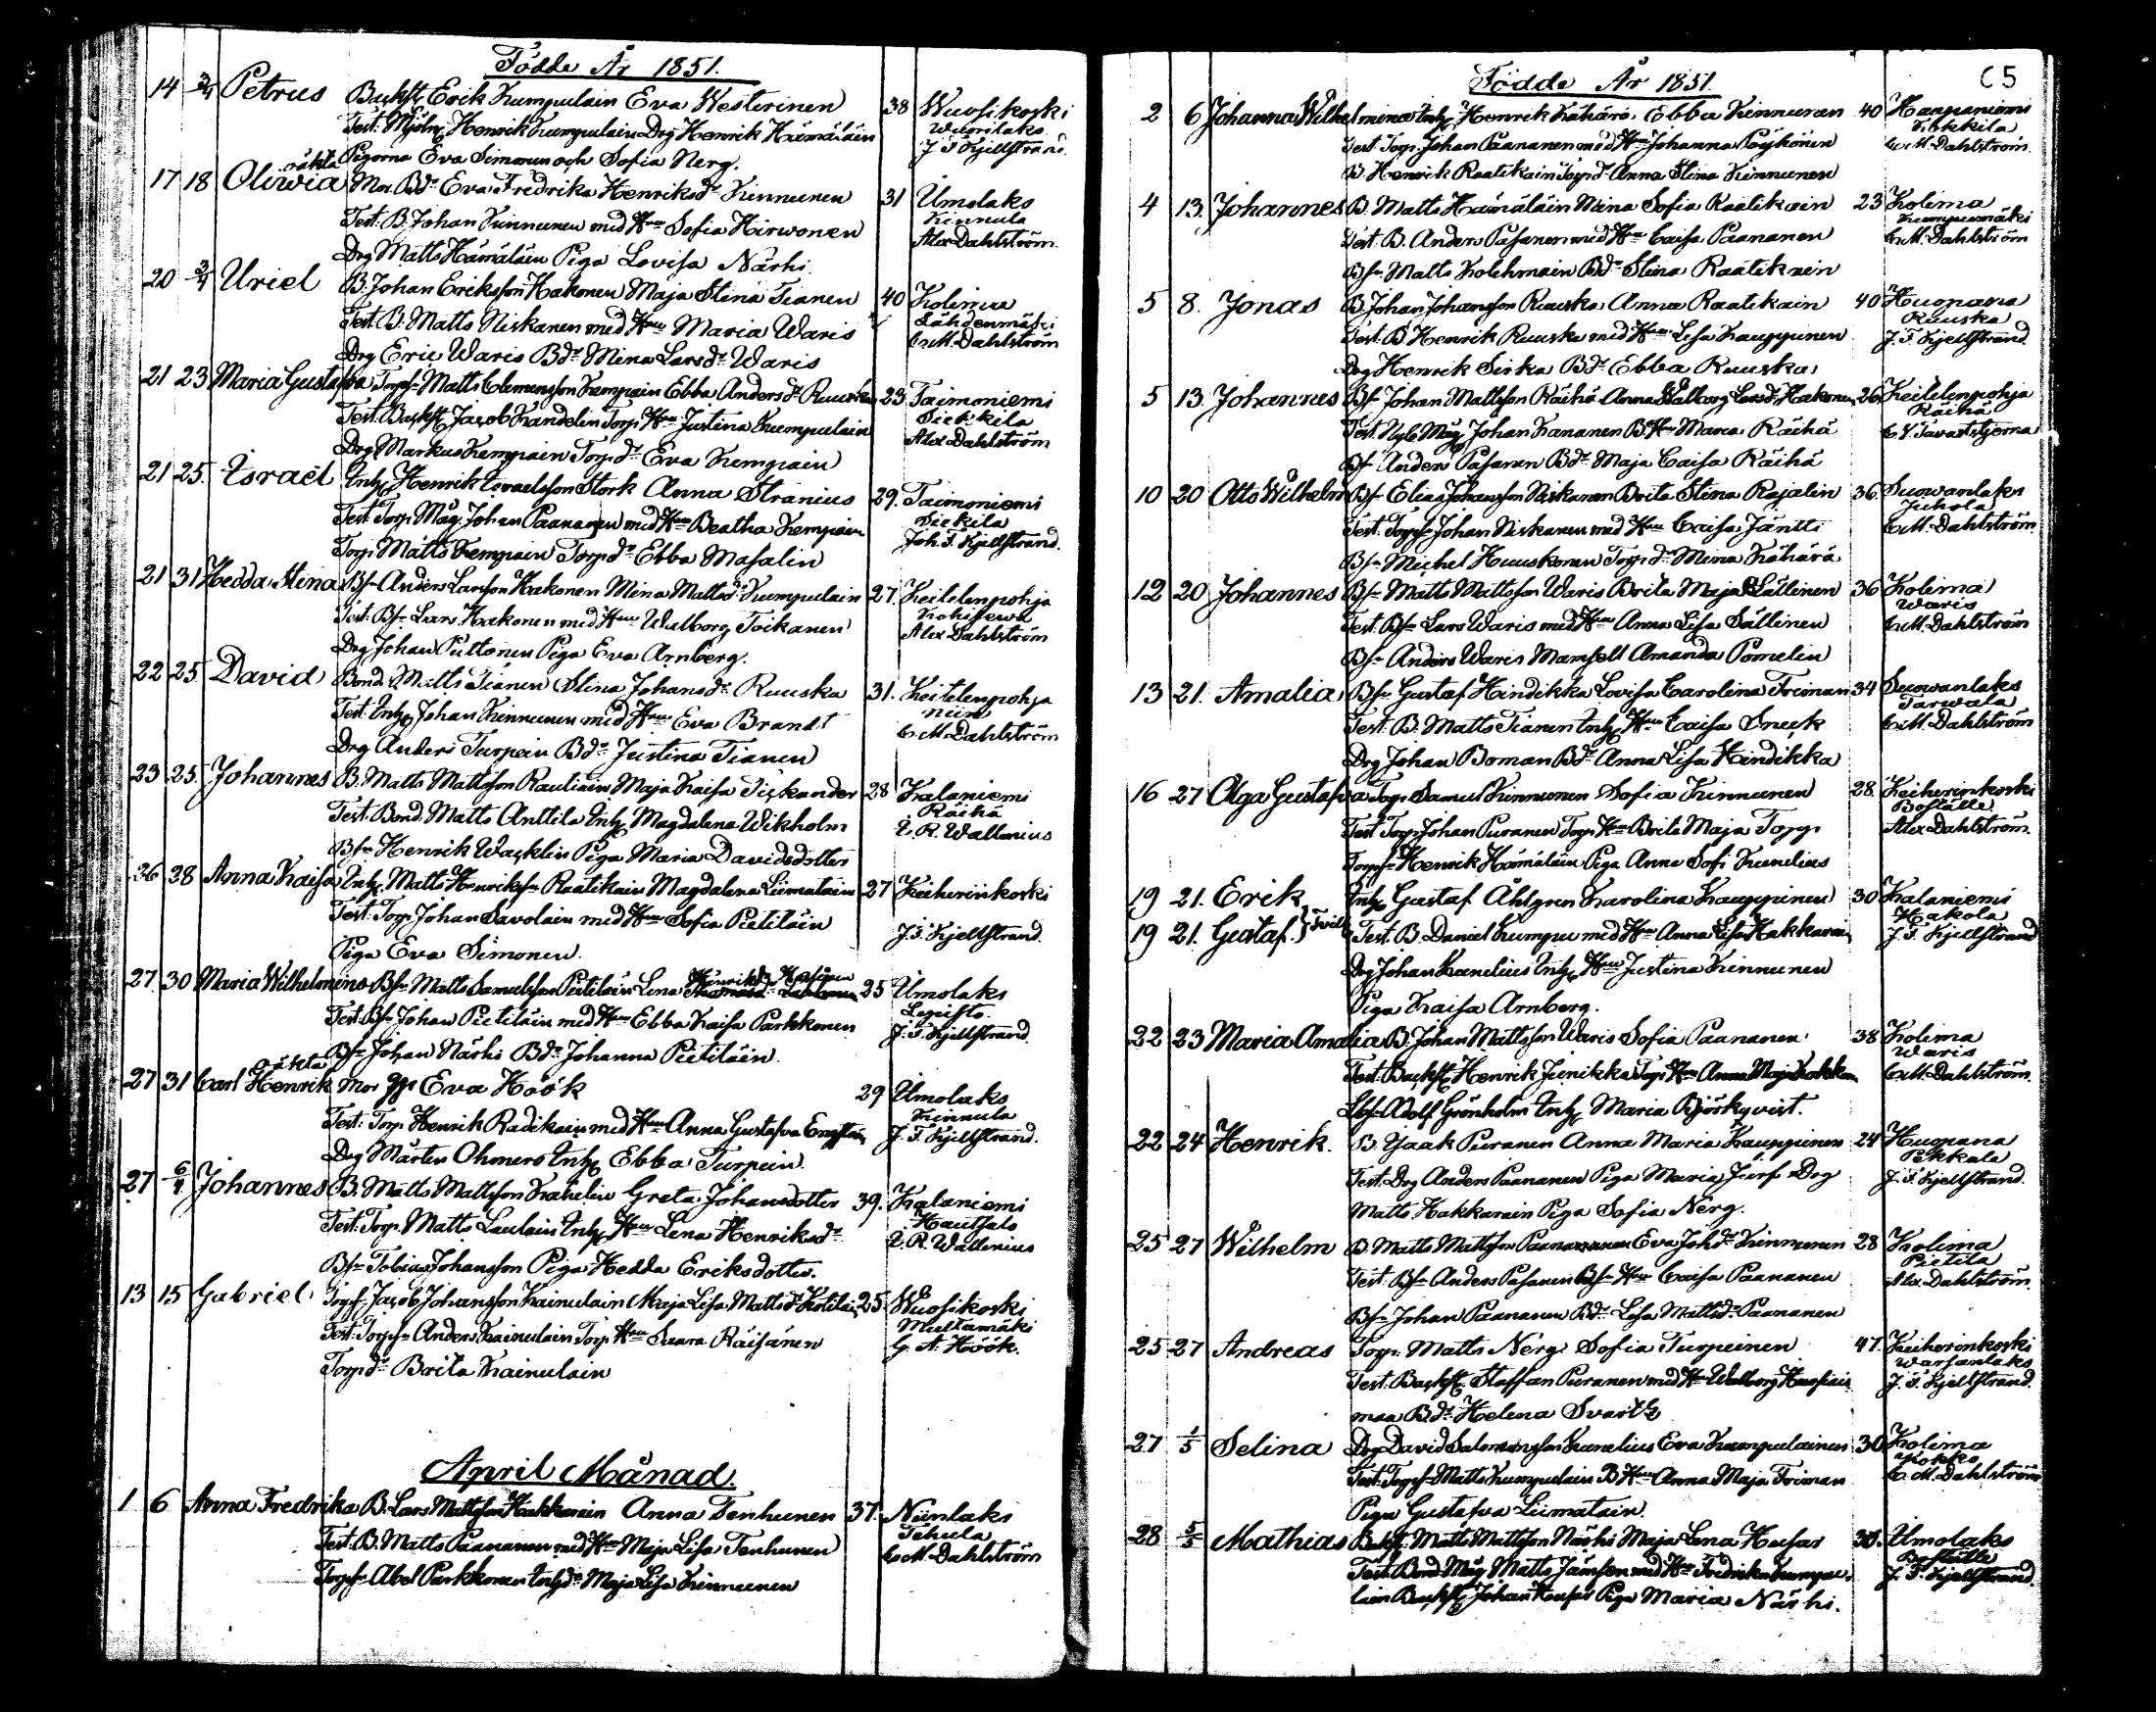 Födde År 1851.
14 3/4 Petrus Backst Erik Kumpulain Eva Westerinen 38 Wuosikoski
Test. Mjöln Henrik Kumpulain Drg Henrik Hämäläin Wuorilaks
Pigorna Eva Simonen och Sofia Nerg. J F Kjellstrand
oäkta
17 18 Oliwia Mor. Bdr Eva Fredrika Henriksdr Kinnunen 31 Umolaks
Test. B. Johan Kinnunen med Hru Sofia Hirwonen Kinnula
Drg Matts Hämäläin Piga Lovisa Närhi Alex Dahlström
20 3/4 Uriel B. Johan Eriksson Hakonen Maja Stina Tianen 40 Kolima
Test. B. Matts Niskanen med Hru Maria Waris Lähdenmäki
Drg Eric Waris Bdr Mina Larsdr Waris C. M. Dahlström
21 23 Maria Gustafva Torpf Matts Clemensson Kempain Ebba Andersdr Ruuska 23 Taimoniemi
Test. Backst Jacob Kandelin Torp. Hru Justina Kumpulain Piekkila
Drg Markus Kempain Torpdr Eva Kempain Alex Dahlström
21 25. Israel Inh Henrik Israelsson Stork Anna Stranius 29. Taimoniemi
Test Torp Måg. Johan Paananen med Hru Beatha Kempain Piekila
Torp. Matts Kempain Torpdr Ebba Masalin Joh. F. Kjellstrand.
21 31 Hedda Stina Bsn Anders Larsson Hakonen Mina Mattsdr Kumpulain 27. Keitelenpohja
Test. Bsn Lars Hakonen med Hru Walborg Toikanen
Drg Johan Puttonen Piga Eva Arnberg. Alex Dahlström
22 25 David Bond. Matts Tianen Stina Johansdr Ruuska 31. Keitelenpohja
Test. Inh Johan Kinnunen med Hru Eva Brandt Niini
Drg Anders Turpein Bdr Justina Tianen C. M. Dahlström
23 25. Johannes B. Matts Mattsson Rautiain Maja Kaisa Fiskander 28 Kalaniemi
Test. Bond. Matts Anttila Inh Magdalena Wikholm Räihä
Bsn Henrik Wacklin Piga Maria Davidsdotter L. R. Wallenius
26 28 Anna Kaisa Inh. Matts Henriksn Raatikain Magdalena Liimatain 27 Keiherinkoski
Test. Torp. Johan Savolain med Hru Sofia Pietiläin
Piga Eva Simonen. J. F. Kjellstrand.
27 30 Maria Wilhelmina Bsn Matts Samuelsson Pietiläin Lena Henriksdr 25 Umolaks
Test. Bsn Johan Pietiläin med Hru Ebba Kaisa Parkkonen Lepistö.
Bsn Johan Närhi Bdr Johanna Pietiläin. J. F. Kjellstrand
oäkta
27 31 Carl Henrik Mor Eva Höök 29 Umolaks
Test: Torp. Henrik Radikain med Hru Anna Gustafva Kinnula
Drg Mårten Ohmero Inh Ebba Turpein. J. F. Kjellstrand.
27 6/4 Johannes B. Matts Mattsson Kahelin Greta Johansdotter 39. Kalaniemi
Test. Torp. Matts Laulain Inh Hru Lena Henriksdr Hautsalo
Bsn Tobias Johansson Piga Hedda Eriksdotter. L. R. Wallenius
13 15 Gabriel Torpf. Jacob Johansson Kainulain Maja Lisa Mattsdr 25. Wuosikoski
Test. Torpsn Anders Kainulain Torp. Hru Saara Räisänen Multamäki
Torpdr Brita Kainulain G. A. Höök.
April Månad.
1 6 Anna Fredrika B. Lars Mattsson Hakkarain Anna Tenhunen 37. Niinlaks
Test. B. Matts Paananen med Hru Maja Lisa Tenhunen Tihula
Torpsn Abel Parkkonen Inhdr Maja Lisa Kinnunen C. M. Dahlström
Födde År 1851. C 5
2 6 Johanna Wilhelmina Inh Henrik Kähärä Ebba Kinnunen 40 Haapaniemi
Test. Torp. Johan Paananen med Hru Johanna Pöyhönen
B. Henrik Raatikain Torpdr Anna Stina Kinnunen C. M. Dahlström.
4 13. Johannes B. Matts Hämäläin Mina Sofia Raatikain 23 Kolima
Test. B. Anders Pasanen med Hru Caisa Paananen
Bsn Matts Kolehmain Bdr Stina Raatikain C. M. Dahlström
5 8. Jonas B. Johan Johansson Ruuska Anna Raatikain 40 Huopana
Test. B. Henrik Ruuska med Hru Lisa Kauppinen Ruuska
Drg Henrik Sirka Bdr Ebba Ruuska J. F. Kjellstrand.
5 13. Johannes Bsn Johan Mattsson Räihä Anna Walborg Larsdr Hakonen 26. Keitelenpohja
Test. Måg Johan Kananen B. Hru Maria Räihä Räihä
Bsn Anders Pasanen Bdr Maja Caisa Räihä Tavaststjerna
10 20 Otto Wilhelm Bsn Elias Johansson Niskanen Brita Stina Rajalin 36. Suowanlaks
Test. Torpsn Johan Niskanen med Hru Caisa Jäntti Juhola
Bsn Michel Huuskonen Torpdr Mina Kähärä C. M. Dahlström.
12 20 Johannes Bsn Matts Mattsson Waris Brita Maja Sällinen 36 Kolima
Test. Bsn Lars Waris med Hru Anna Lisa Sällinen Waris
Bsn Anders Waris Mamsell Amanda Pomelin C. M. Dahlström
13 21. Amalia Bsn Gustaf Hindikka Lovisa Carolina Friman 34 Suowanlaks
Test. B. Matts Tianen Inh Hru Caisa Sneck Tarwala
Drg Johan Boman Bdr Anna Lisa Hindikka C. M. Dahlström
16 27 Olga Gustafva Torp. Samuel Kinnunen Sofia Kinnunen 28. Keiherinkoski
Test Torp. Johan Puranen Torp. Hru Brita Maja Torp. Boställe
Torpsn Henrik Hämäläin Piga Anna Sofi Kunelius Alex Dahlström.
19 21. Erik Inh Gustaf Åhlgren Karolina Kauppinen 30 Kalaniemi
19 21. Gustaf. Test. B. Daniel Kumpu med Hru Anna Lisa Hakkarain Hakola
Drg Johan Kunelius Inh Hru Justina Kinnunen J. F. Kjellstrand
Piga Kaisa Arnberg.
22 23 Maria Amalia B. Johan Mattsson Waris Sofia Paananen 38 Kolima
Test. Backst Henrik Jinikka Torp. Hru Anna Maja Waris
Adolf Grönholm Inh Maria Björkqvist. C. M. Dahlström.
22 24 Henrik. B. Isaak Puranen Anna Maria Kauppinen 24 Huopana
Test. Drg Anders Paananen Piga Maria Drg Pekkala
Matts Hakkarain Piga Sofia Nerg. J. F. Kjellstrand.
25 27 Wilhelm B. Matts Mattsson Paananen Eva Johdr Kinnunen 28 Kolima
Test. Bsn Anders Pasanen Bsn Hru Caisa Paananen Pietila
Bsn Johan Paananen Bdr Lisa Mattsdr Paananen Alex. Dahlström.
25 27 Andreas Torp. Matts Nerg Sofia Turpeinen 47. Keiherinkoski
Test. Backst Staffan Puranen med Hru Walborg
maa Bdr Helena Svartz J. F. Kjellstrand.
27 1/5 Selina Drg David Salomonsson Kunelius Eva Kumpulainen 30 Kolima
Test. Torpsn Matts Kumpulain B. Hru Anna Maja Friman Kokko
Piga Gustafva Liimatain. C. M. Dahlström
28 5/5 Mathias Backst. Matts Mattsson Närhi Maja Lena Husar 30. Umolaks
Test. Bond Måg Matts Jämsen med Hru Fredrika Kumpu- Boställe
lain Backst Johan Husar Piga Maria Närhi. J. F. Kjellstrand.